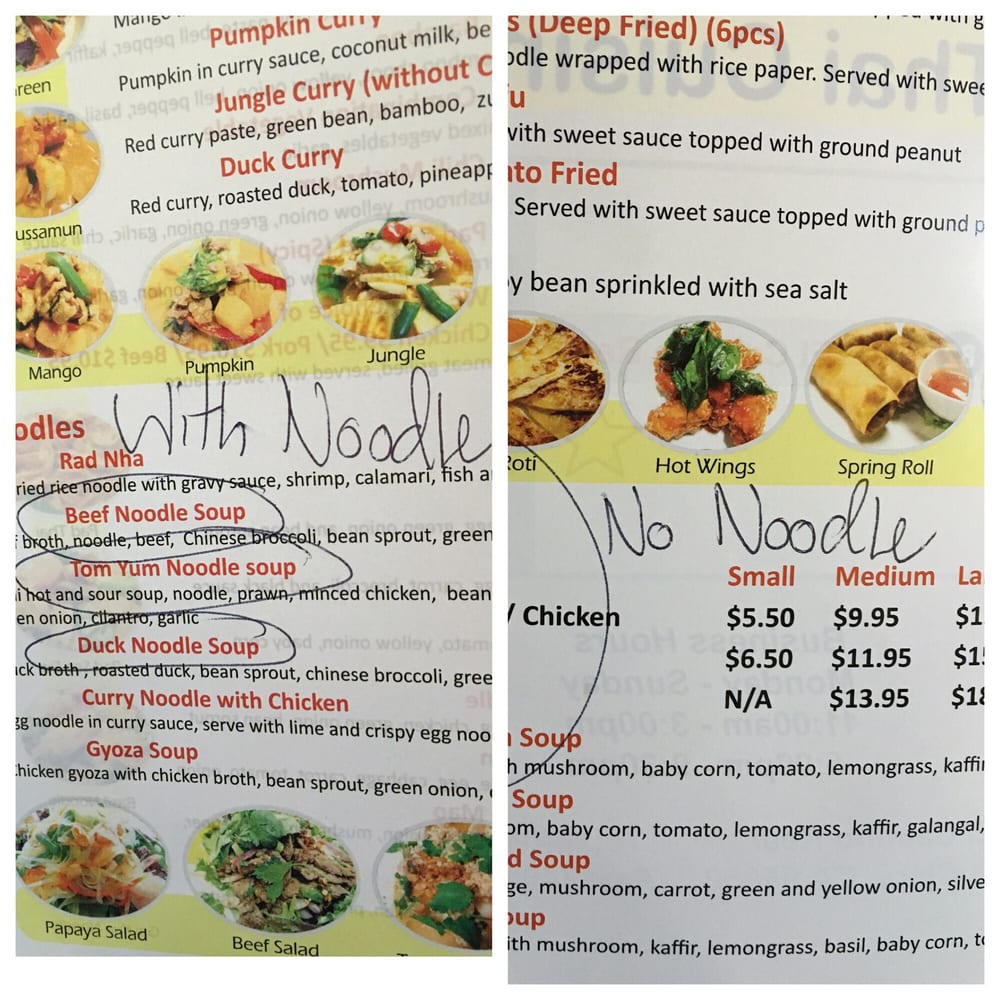 Pumpkin Curry
Pumpkin in curry sauce, coconut milk, be
Jungle Curry (without C
Red curry paste, green bean, bamboo, zu
Duck Curry
Red curry, roasted duck, tomato, pineapp
reen
ussamun
Mango
Pumpkin
Jungle
With Noodle
odles
Rad Nha
ried rice noodle with gravy sauce, shrimp, calamari, fish a
Beef Noodle Soup
f broth, noodle, beef, Chinese broccoli, bean sprout, green
Tom Yum Noodle soup
i hot and sour soup, noodle, prawn, minced chicken, bean
en onion, cilantro, garlic
Duck Noodle Soup
uck broth , roasted duck, bean sprout, chinese broccoli, gree
Curry Noodle with Chicken
gg noodle in curry sauce, serve with lime and crispy egg noo
Gyoza Soup
Chicken gyoza with chicken broth, bean sprout, green onion,
Papaya Salad
Beef Salad
s (Deep Fried) (6pcs)
odle wrapped with rice paper. Served with swee
fu
with sweet sauce topped with ground peanut
ato Fried
Served with sweet sauce topped with ground p
y bean sprinkled with sea salt
Roti
Hot Wings
Spring Roll
No Noodle
Small Medium La
/ Chicken $5.50 $9.95 $1
$6.50 $11.95 $1
N/A $13.95 $18
Soup
h mushroom, baby corn, tomato, lemongrass, kaffi
Soup
om, baby corn, tomato, lemongrass, kaffir, galangal,
d Soup
ge, mushroom, carrot, green and yellow onion, silve
oup
ith mushroom, kaffir, lemongrass, basil, baby corn, to